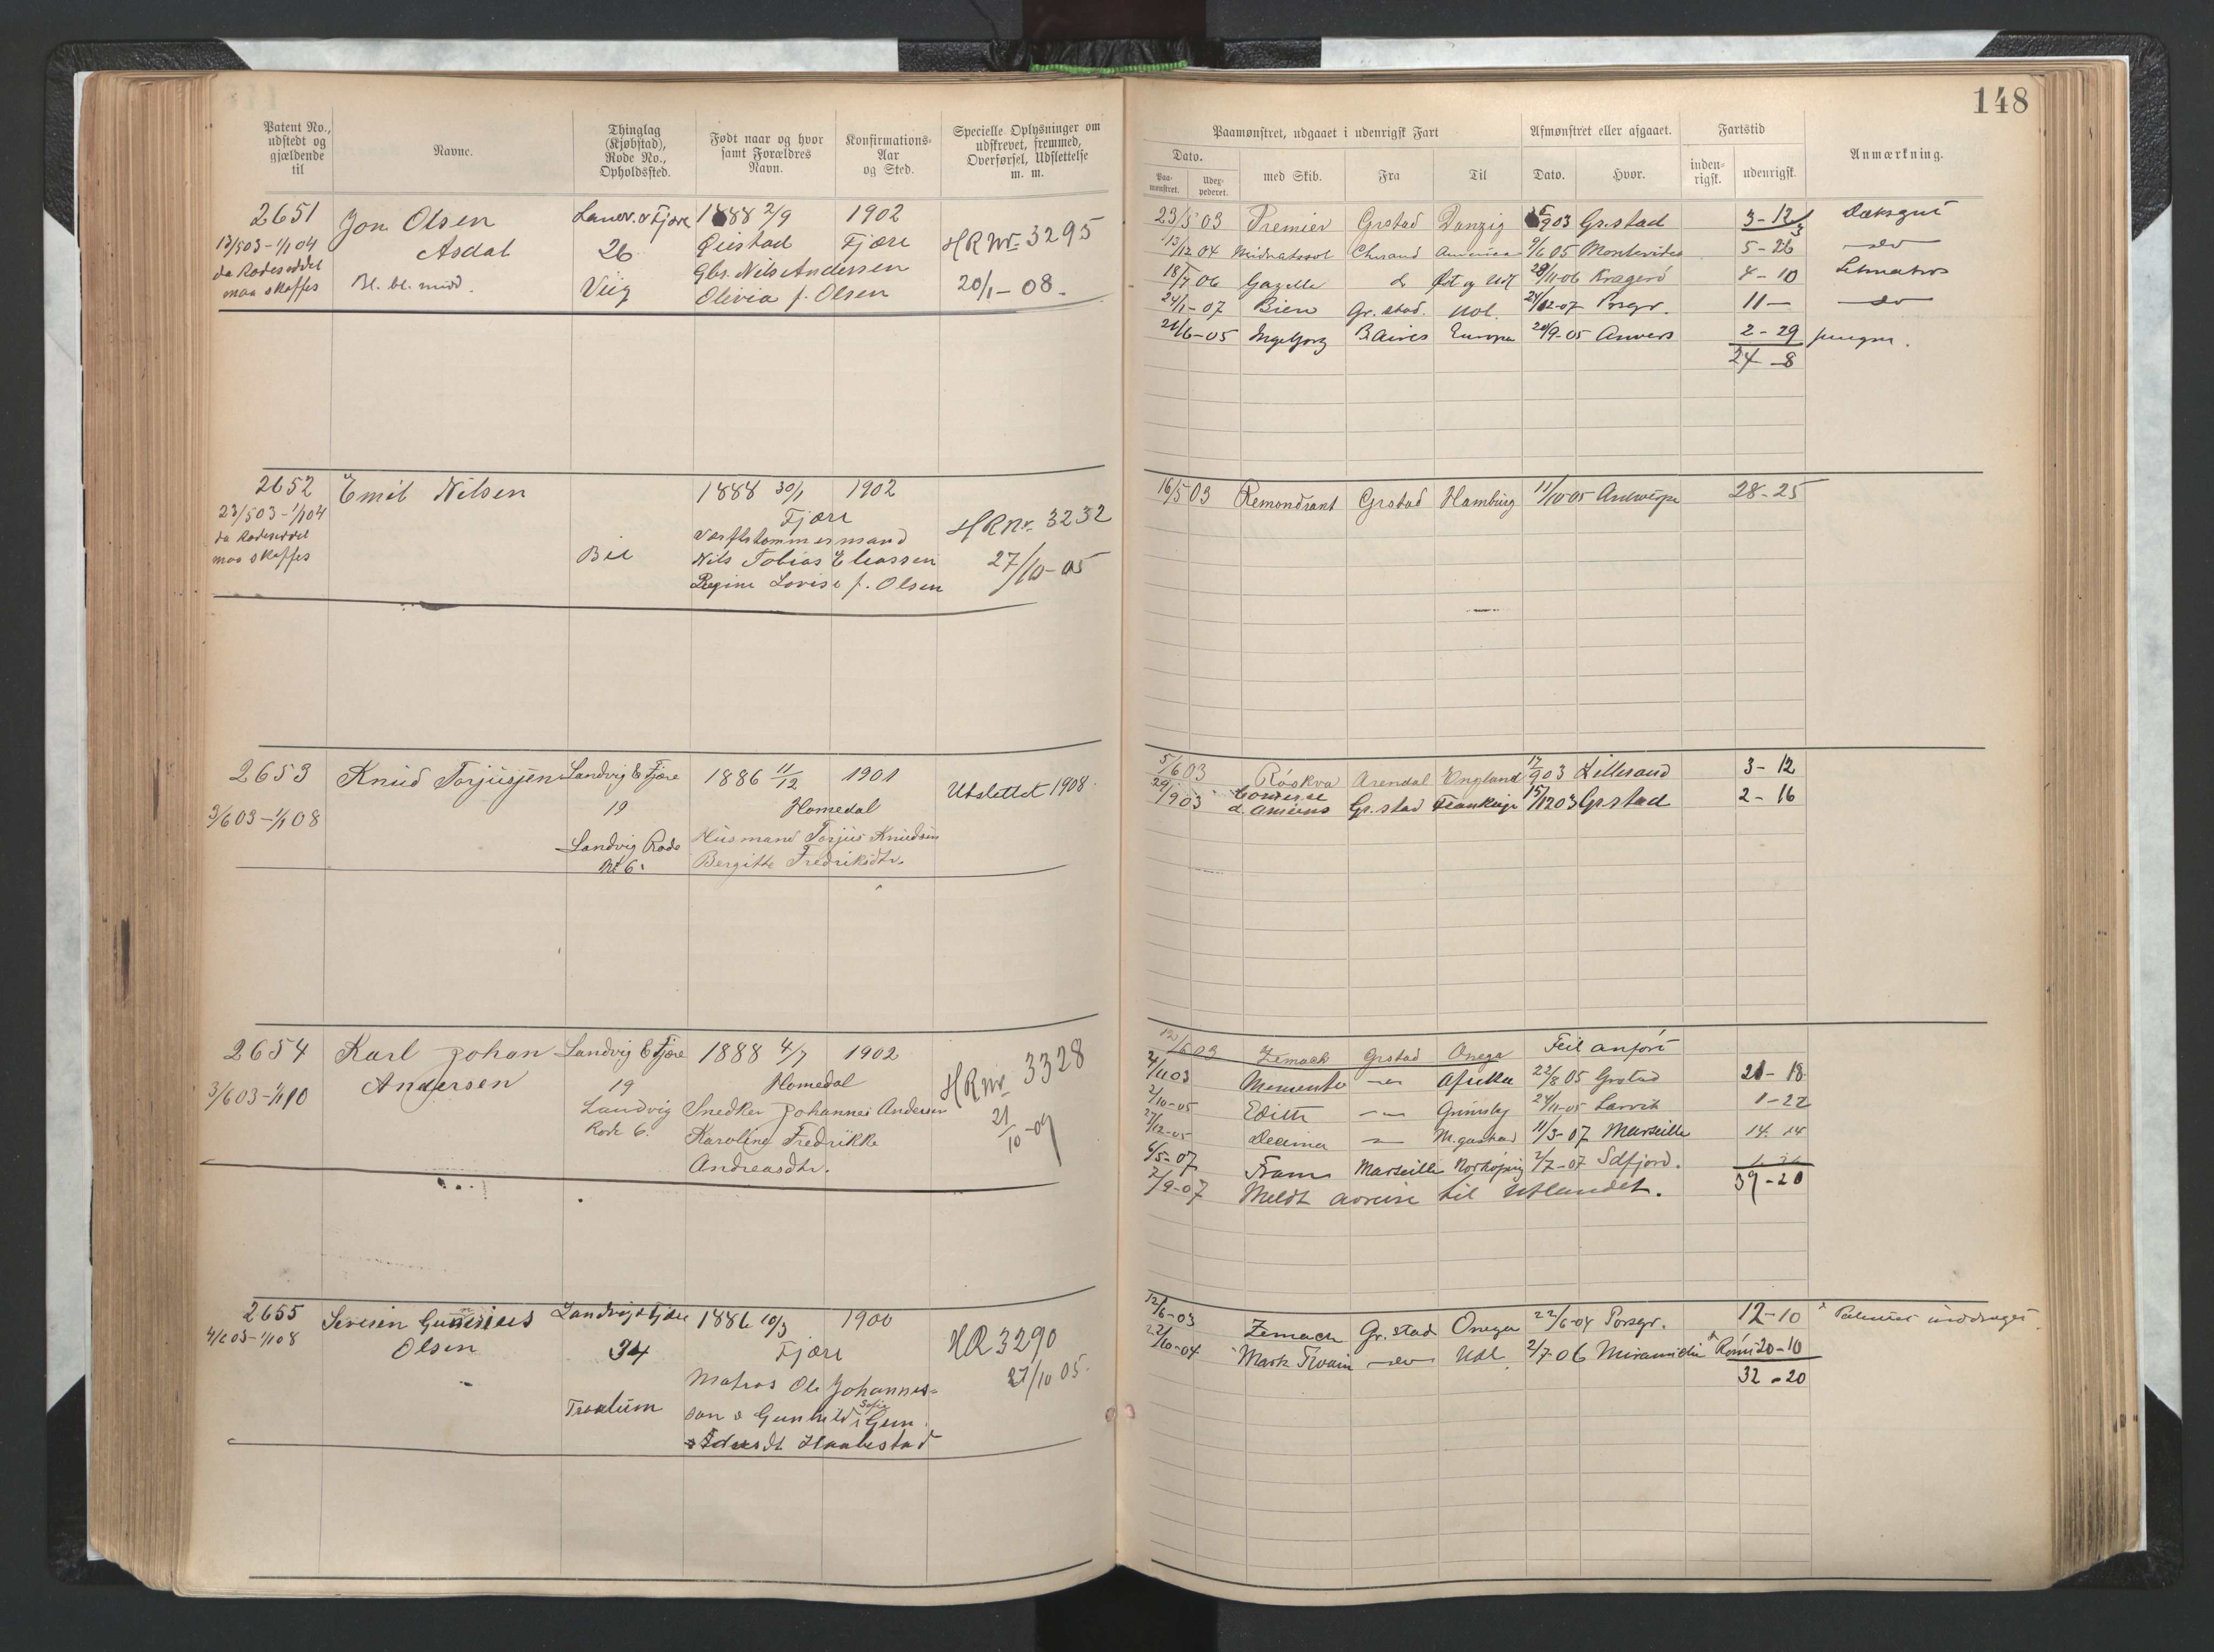 148
Patent No., udstedt og gjældende til
Navne.
Thinglag (Kjøbstad), Rode No., Opholdssted.
Født naar og hvor samt Forældres Navn.
Konfirmations-Aar og Sted.
Specielle Oplysninger om udskrevet, fremmed, Overførsel, Udslettelse m. m.
Paamønstret, udgaaet i udenrigsk Fart
Afmønstret eller afgaaet.
Fartstid
Anmærkning.
Dato.
Paa-mønstret.
Udex-pederet.
med Skib.
Fra
Til
Dato.
Hvor.
inden-rigsk.
udenrigsk.
2651 Jon Olsen Landv. & Fjære 1888 2/9 1902
13/5 03 - 1/1 04 Asdal 26 Øiestad Fjære HRNr 3295
da Rodeseddel Gbr. Nils Andersen
maa skaffes Bl. bl. midd. Viig Olivia f. Olsen 20/1-08.
23/5 03 Premier Grstad Danzig 9 03 Grstad 3-12 Dæksgut
13/12 04 Midnatssol Chrsand America 9/6 05 Montevideo 5-26 do
18/7 06 Gazelle d Øst og Udl 28/11-06 Kragerö 4-10 Letmatros
24/1-07 Bien Gr.stad. Udl. 24/12-07 Prsgr. 11- do
21/6-05 Ingeborg B.Aires Europa 20/9-05 Anvers 2-29 jungm.
24-8
2652 Emil Nilsen 1888 30/1 1902
23/5 03 - 1/1 04 Fjære HRNr. 3232
da Rodeseddel Værftstømmermand
maa skaffes Bie Nils Tobias Eliassen 27/10-05
Regine Lovise f. Olsen
16/5 03 Remondrant Grstad Hamburg 11/10-05 Antwerpn 28-25
2653 Knud Torjusjen Landvig & Fjære 1886 11/12 1901 Utslettet 1908.
3/6 03 - 1/1 08 19 Homedal
Landvig Rode Husmand Torjus Knudsen
No 6. Bergitte Fredriksdtr.
5/6 03 Röskva Arendal England 17/9 03 Lillesand 3-12
29/9 03 Comtesse d. Amiens Gr.stad 15/12 03 Grstad 2-16
2654 Karl Johan Landvig & Fjære 1888 4/7 1902
3/6 03 - 1/1 10 Andersen 19 Homedal HRNr 3328
Landvig Snedker Johannes Andersen 21/10-09
Rode 6. Karoline Fredrikke
Andreasdtr.
/6 03 Zemach Grstad Onega Feil anfört
4/11 03 Memento do Afrika 22/8 05 Grstad 21-18
2/10-05 Edith Grimsby 24/11-05 Larvik 1-22
27/12-05 Decima M.gaskar 11/3-07 Marseille 14.14
6/5-07 Fram Marseille Norköping 2/7-07 Sdfjord.
2/9-07 Meldt avreise til Utlandet. 39-20
2655 Severin Gunerius Landvig & Fjære 1886 10/3 1900
4/6 03 - 1/1 08 Olsen 34 Fjære HR 3290
Matros Ole Johannes- 27/10 05.
Trældum son & Gunhild Sofie
Haabestad
12/6-03 Zemach Gr.stad Onega 22/6-04 Porsgr. 12-10 x Patentet inddraget
22/10-04 Mark Twain do Udl 2/7-06 Miramichi x Römt 20-10
32-20